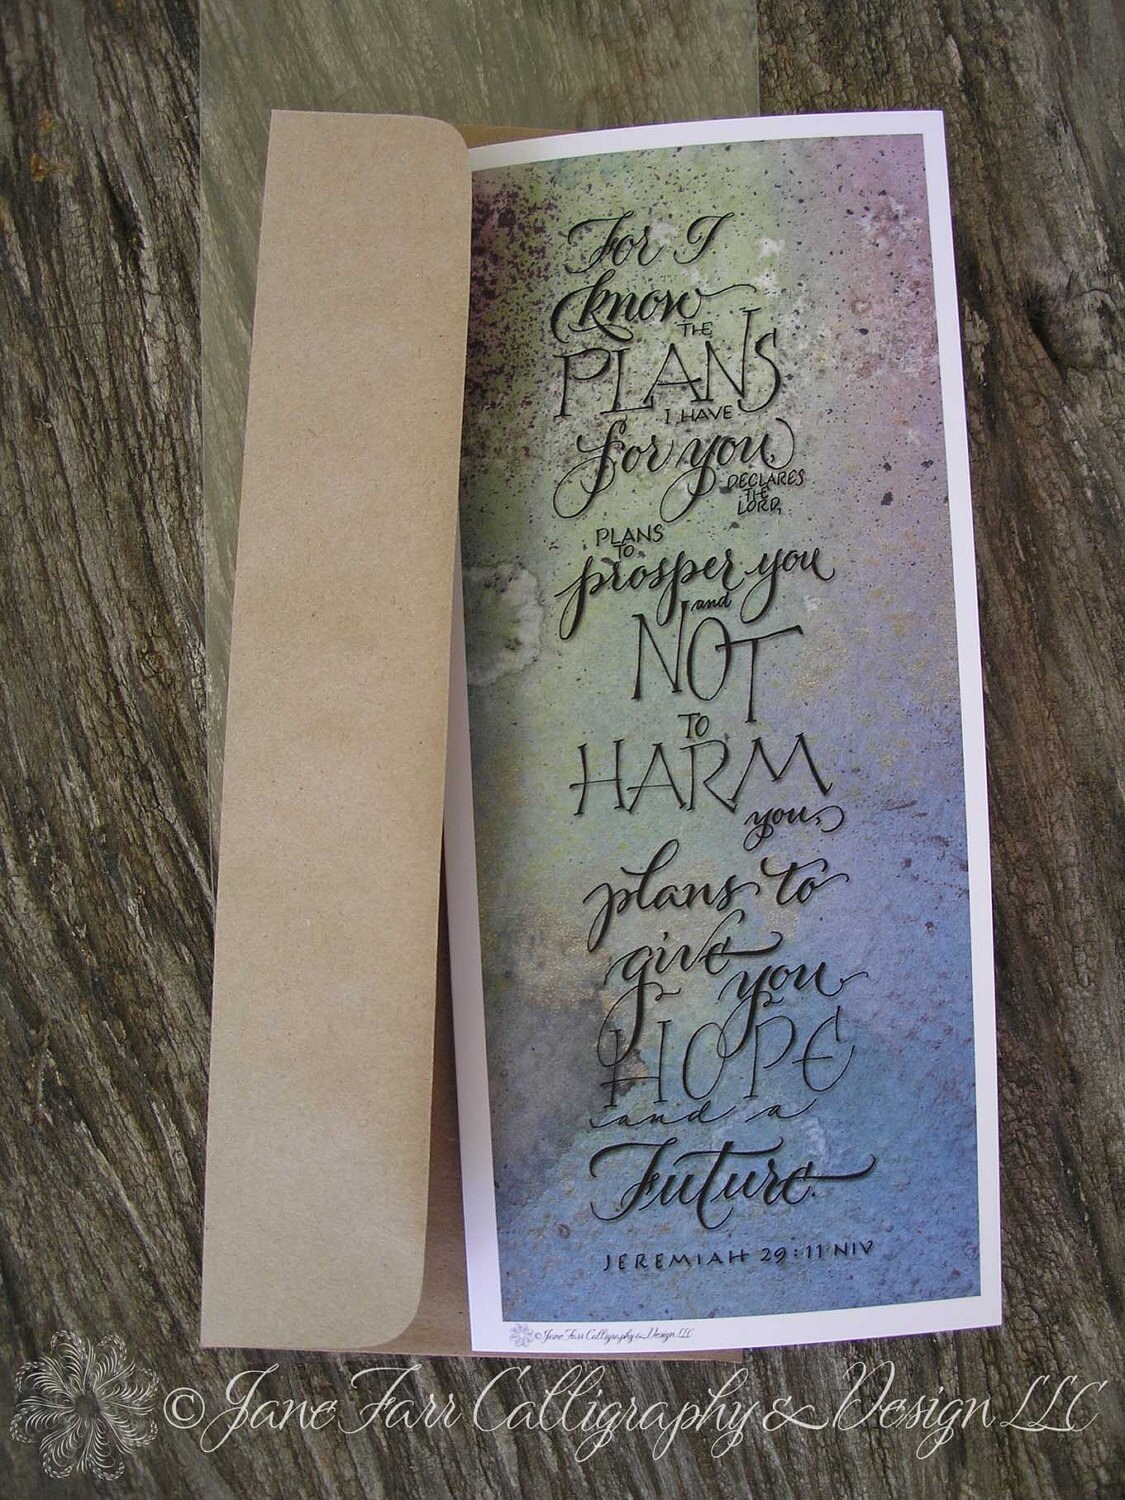 For I
know
THE
PLANS
I HAVE
for you,
DECLARES
THE
LORD,
PLANS
TO
prosper you
and
NOT
TO
HARM
you,
plans to
give
you
HOPE
and a
Future.
JEREMIAH 29:11 NIV
© Jane Farr Calligraphy & Design LLC
© Jane Farr Calligraphy & Design LLC